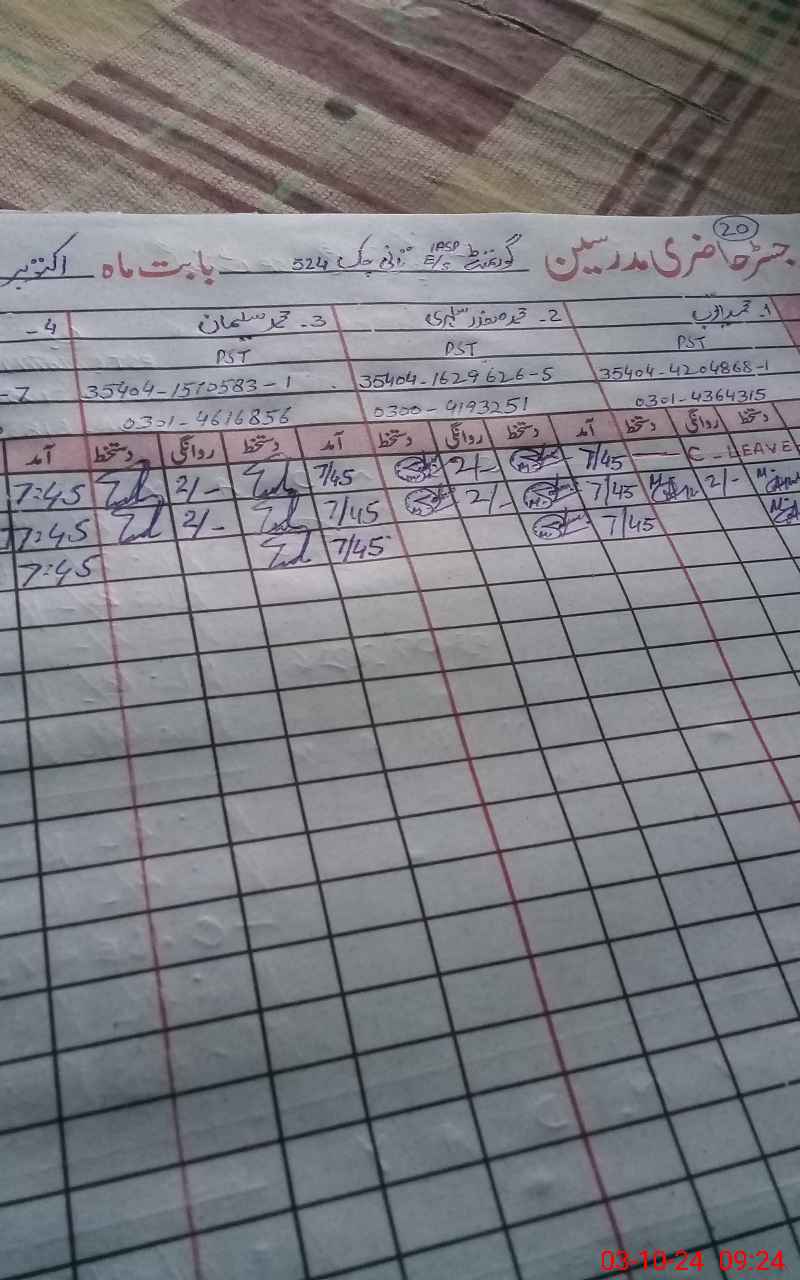 20
رجسٹر حاضری مدرسین گورنمنٹ IASP E/S چک 524 بابت ماہ اکتوبر
1- محمد ایوب 2- محمد 3- محمد سلیمان 4-
PST PST PST
35404-4204868-1 35404-1629626-5 35404-1510583-1 -7
0301-4364315 0300-4193251 0301-4616856
دستخط روانگی دستخط آمد دستخط روانگی دستخط آمد دستخط روانگی دستخط آمد
C - LEAVE 7/45 2/- 7/45 2/- 7:45
2/- 7/45 2/- 7/45 2/- 7:45
7/45 7/45 7:45
03-10-24 09:24